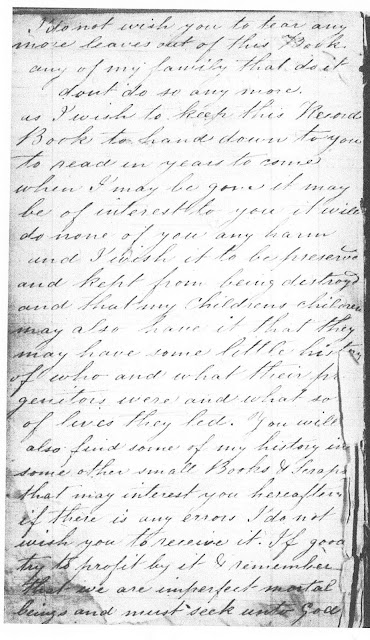 I do not wish you to tear any
more leaves out of this Book.
any of my family that do it
dont do so any more.
as I wish to keep this Record
Book to hand down to you
to read in years to come
when I may be gone it may
be of interest to you it will
do none of you any harm
and I wish it to be preserve
and kept from being destroyd
and that my childrens children
may also have it that they
may have some little history
of who and what their pr
genitors were and what so
of lives they led. You will
also find some of my history in
some other small Books & Scraps
that may interest you hereafter
if there is any errors I do not
wish you to receive it. If good
try to profit by it & remember
that we are imperfect mortal
beings and must seek unto God